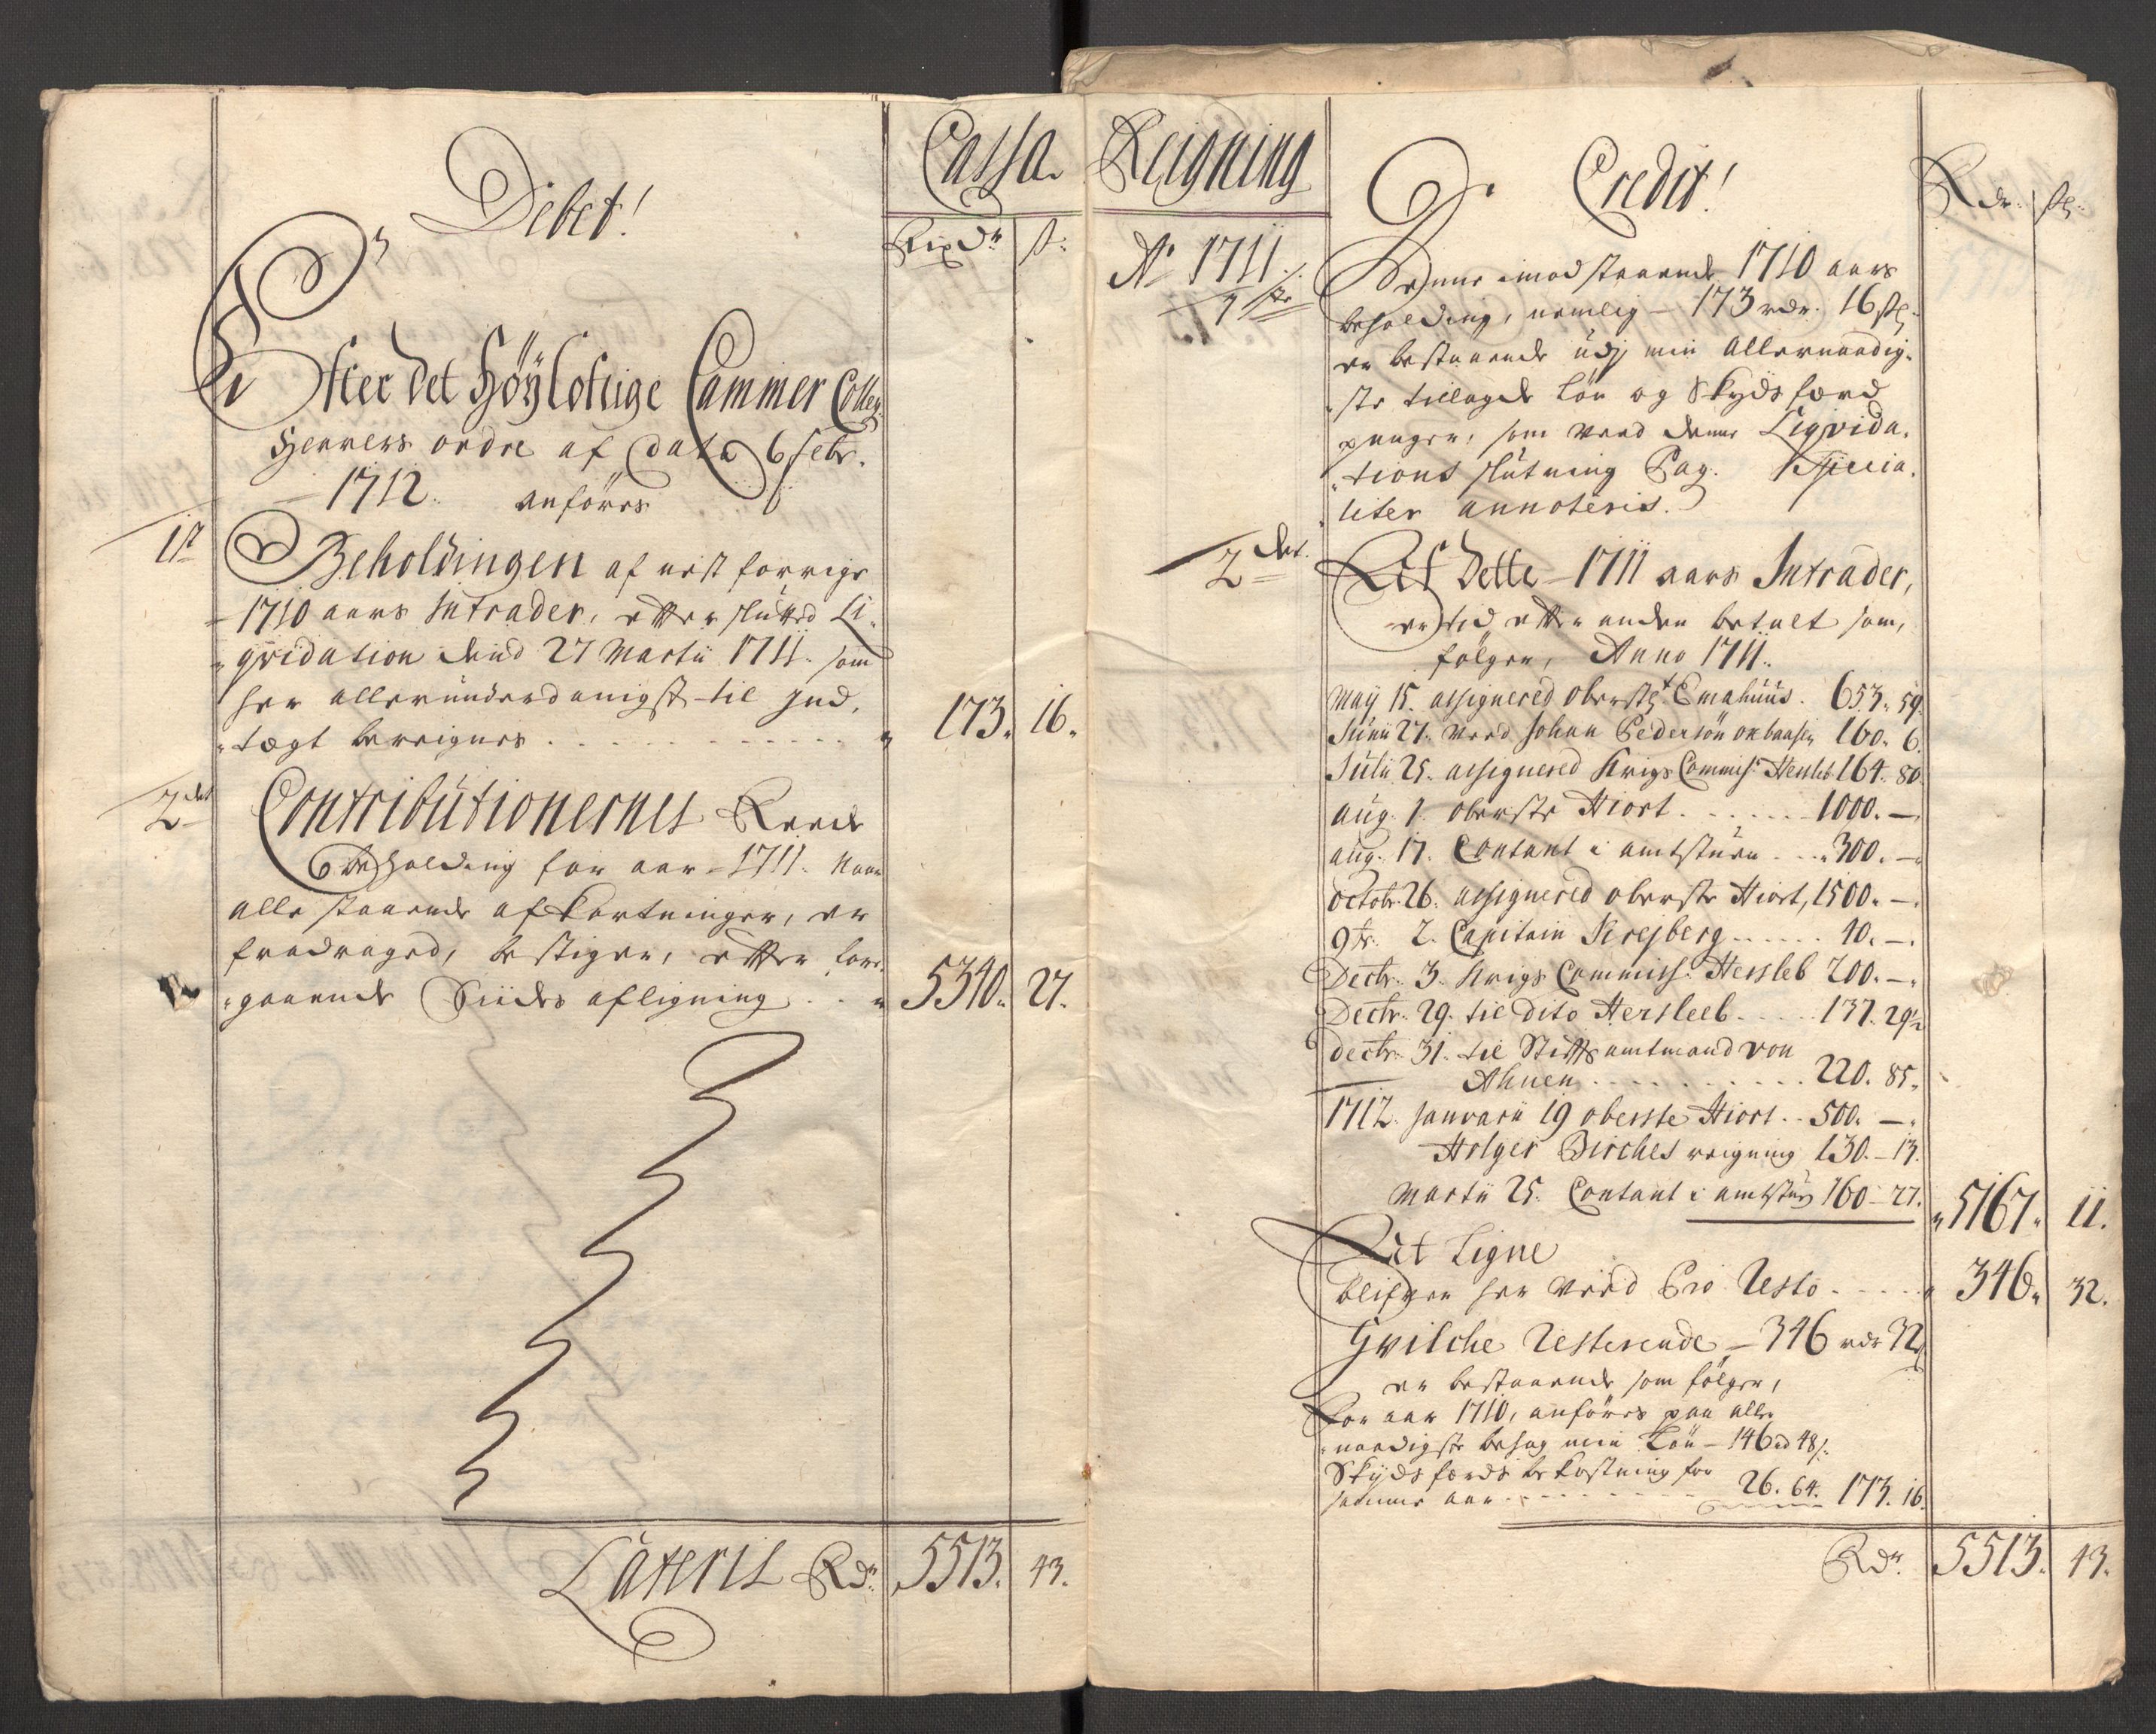 Debet!
Cassa
Rixdr
s:
Efter det Höyloflige Cammer Colleg:
Herrers ordre af Dato 6 Febr.
1712. anföres
1te
Beholdingen af nest forrige
1710 aars Intrader, efter slutted Li-
qvidation dend 27 Martii 1711. som
her allerunderdanigst til Ind-
tægt bereignes . . . . . 173. 16.
2det
Contributionernes Reede
beholding for aar 1711. Naar
alle staaende afkortninger, er
fradraged, bestiger, efter fore-
gaaende Siides afligning . . 5340. 27.
Lateris Rdr. 5513. 43.
Reigning
Credit!
Rdr. sl:
Ao 1711.
1ste
Denne imodstaaende 1710 aars
beholding, nemlig 173 rdr. 16 sl:
er bestaaende udj min Allernaadig-
ste tillagde Lön og Skydsferd
penger, som ved denne Liqvida-
tions slutning Pag. specia-
liter annoteris.
2det.
Af Dette 1711 aars Intrader,
er tid efter anden betalt som,
fölger, Anno 1711.
Maij 15. assignered oberstl. Emahuus. 653. 59.
Junii 27. ved Johan Pedersön 160. 6.
Julii 25. assignered Krigs Commiss: Hersleb 164. 80.
Aug. 1. Oberste Hiort . . . . . 1000. —
Aug. 17. Contant i amtstuen . . . 300. —
Octobr. 26. assignered oberste Hiort, 1500. —
9br. 2. Capitain . . . . . 40. —
Decbr. 3. Krigs Commiss. Hersleb 200. —
Decbr. 29. til dito Hersleeb . . . . 137. 29½
Decbr. 31. til Stiftsamtmand von
Ahnen . . . . . . . . . 220. 85.
1712. Januarii 19 oberste Hiort . . 500. —
Holger Birches reigning 130. — 13.
Martii 25. Contant i amtstuen 160 — 27.
5167. 11.
Ligne
blifver her ved Pro Resto . . . . . 346. 32.
Hvilche Resterende — 346 rdr 32 s
er bestaaende som fölger,
For aar 1710, anföres paa aller-
naadigste behag min Lön — 146 rd 48 s:
Skydsferds bekostning for
samme aar . . . . . . . 26. 64. 173. 16.
Rdr. 5513. 43.